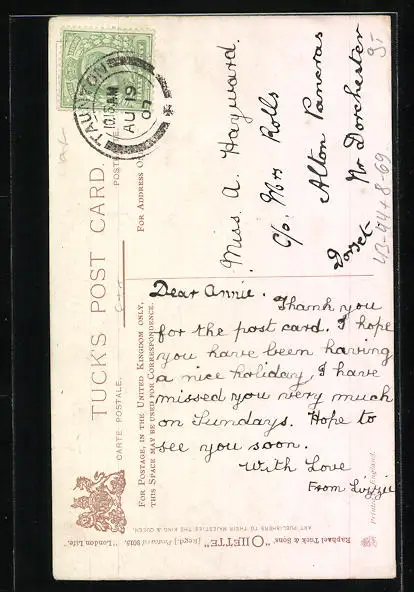 TUCK'S POST CARD.
CARTE POSTALE.
POST
FOR POSTAGE, IN THE UNITED KINGDOM ONLY,
THIS SPACE MAY BE USED FOR CORRESPONDENCE.
FOR ADDRESS O
TAUNTON
10.15AM
AU 19
07
Miss. A. Hayward.
C/o. Mrs Rolls
Alton Pancras
Nr Dorchester
Dorset
Dear Annie.
Thank you
for the post card. I hope
you have been having
a nice holiday, I have
missed you very much
on Sundays. Hope to
see you soon.
With Love
From Lizzie
Raphael Tuck & Sons' "OILETTE" [Regd.] Postcard "London Life."
ART PUBLISHERS TO THEIR MAJESTIES THE KING & QUEEN.
Printed in England.